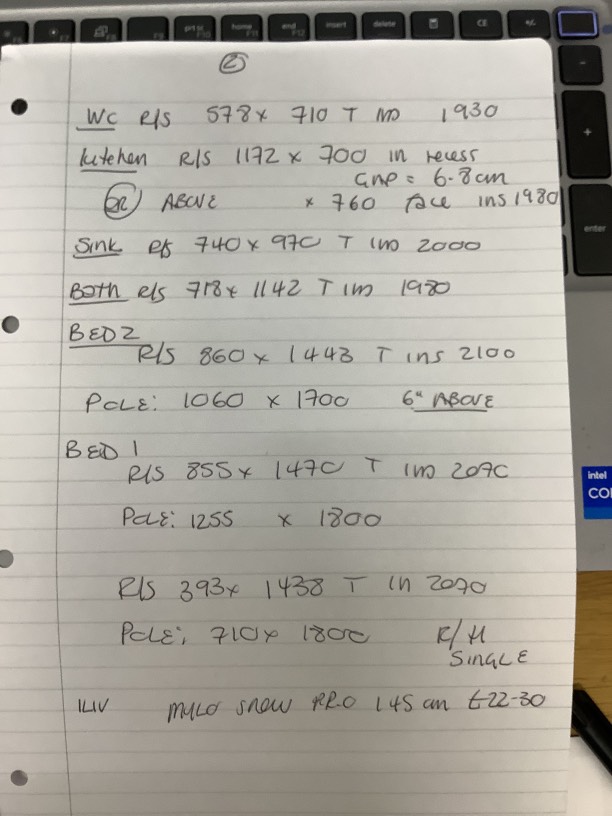 prt sc
F10
home
F11
end
F12
insert
delete
CE
+/-
-
+
enter
2
WC R/S 578 x 710 T ins 1930
kitchen R/S 1172 x 700 in recess
GAP = 6.8cm
OR ABOVE x 760 face ins 1980
Sink R/S 740 x 970 T ins 2000
Bath R/S 718 x 1142 T ins 1980
BED 2
R/S 860 x 1443 T ins 2100
POLE: 1060 x 1700 6" ABOVE
BED 1
R/S 855 x 1470 T ins 2070
POLE: 1255 x 1800
R/S 393 x 1438 T in 2070
POLE: 710 x 1800 R/H
SINGLE
ILIV snow 145 cm £22-30
intel
CO